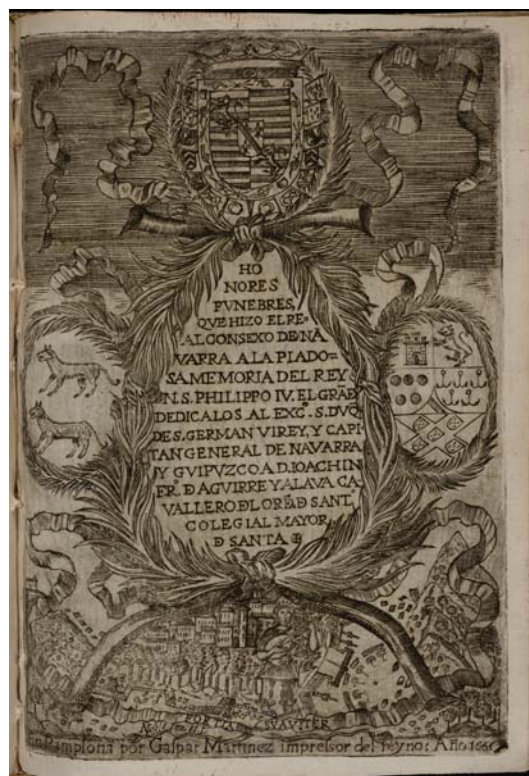 HO
NORES
FVNEBRES,
QVE HIZO EL RE=
AL CONSEXO DE NA
VARRA A LA PIADO=
SA MEMORIA DEL REY
N. S. PHILIPPO IV. EL GRÃD
DEDICALOS AL EXCº. S. DVQ
DE S. GERMAN VIREY, Y CAPI
TAN GENERAL DE NAVARRA
Y GUIPUZCOA D. IOACHIN
FRº. D AGVIRRE Y ALAVA CA
VALLERO D LORẼ D SANT
COLEGIAL MAYOR
D SANTA
FORTITER SVAVITER
Pamplona por Gaspar Martinez impresor del reyno: Año 166